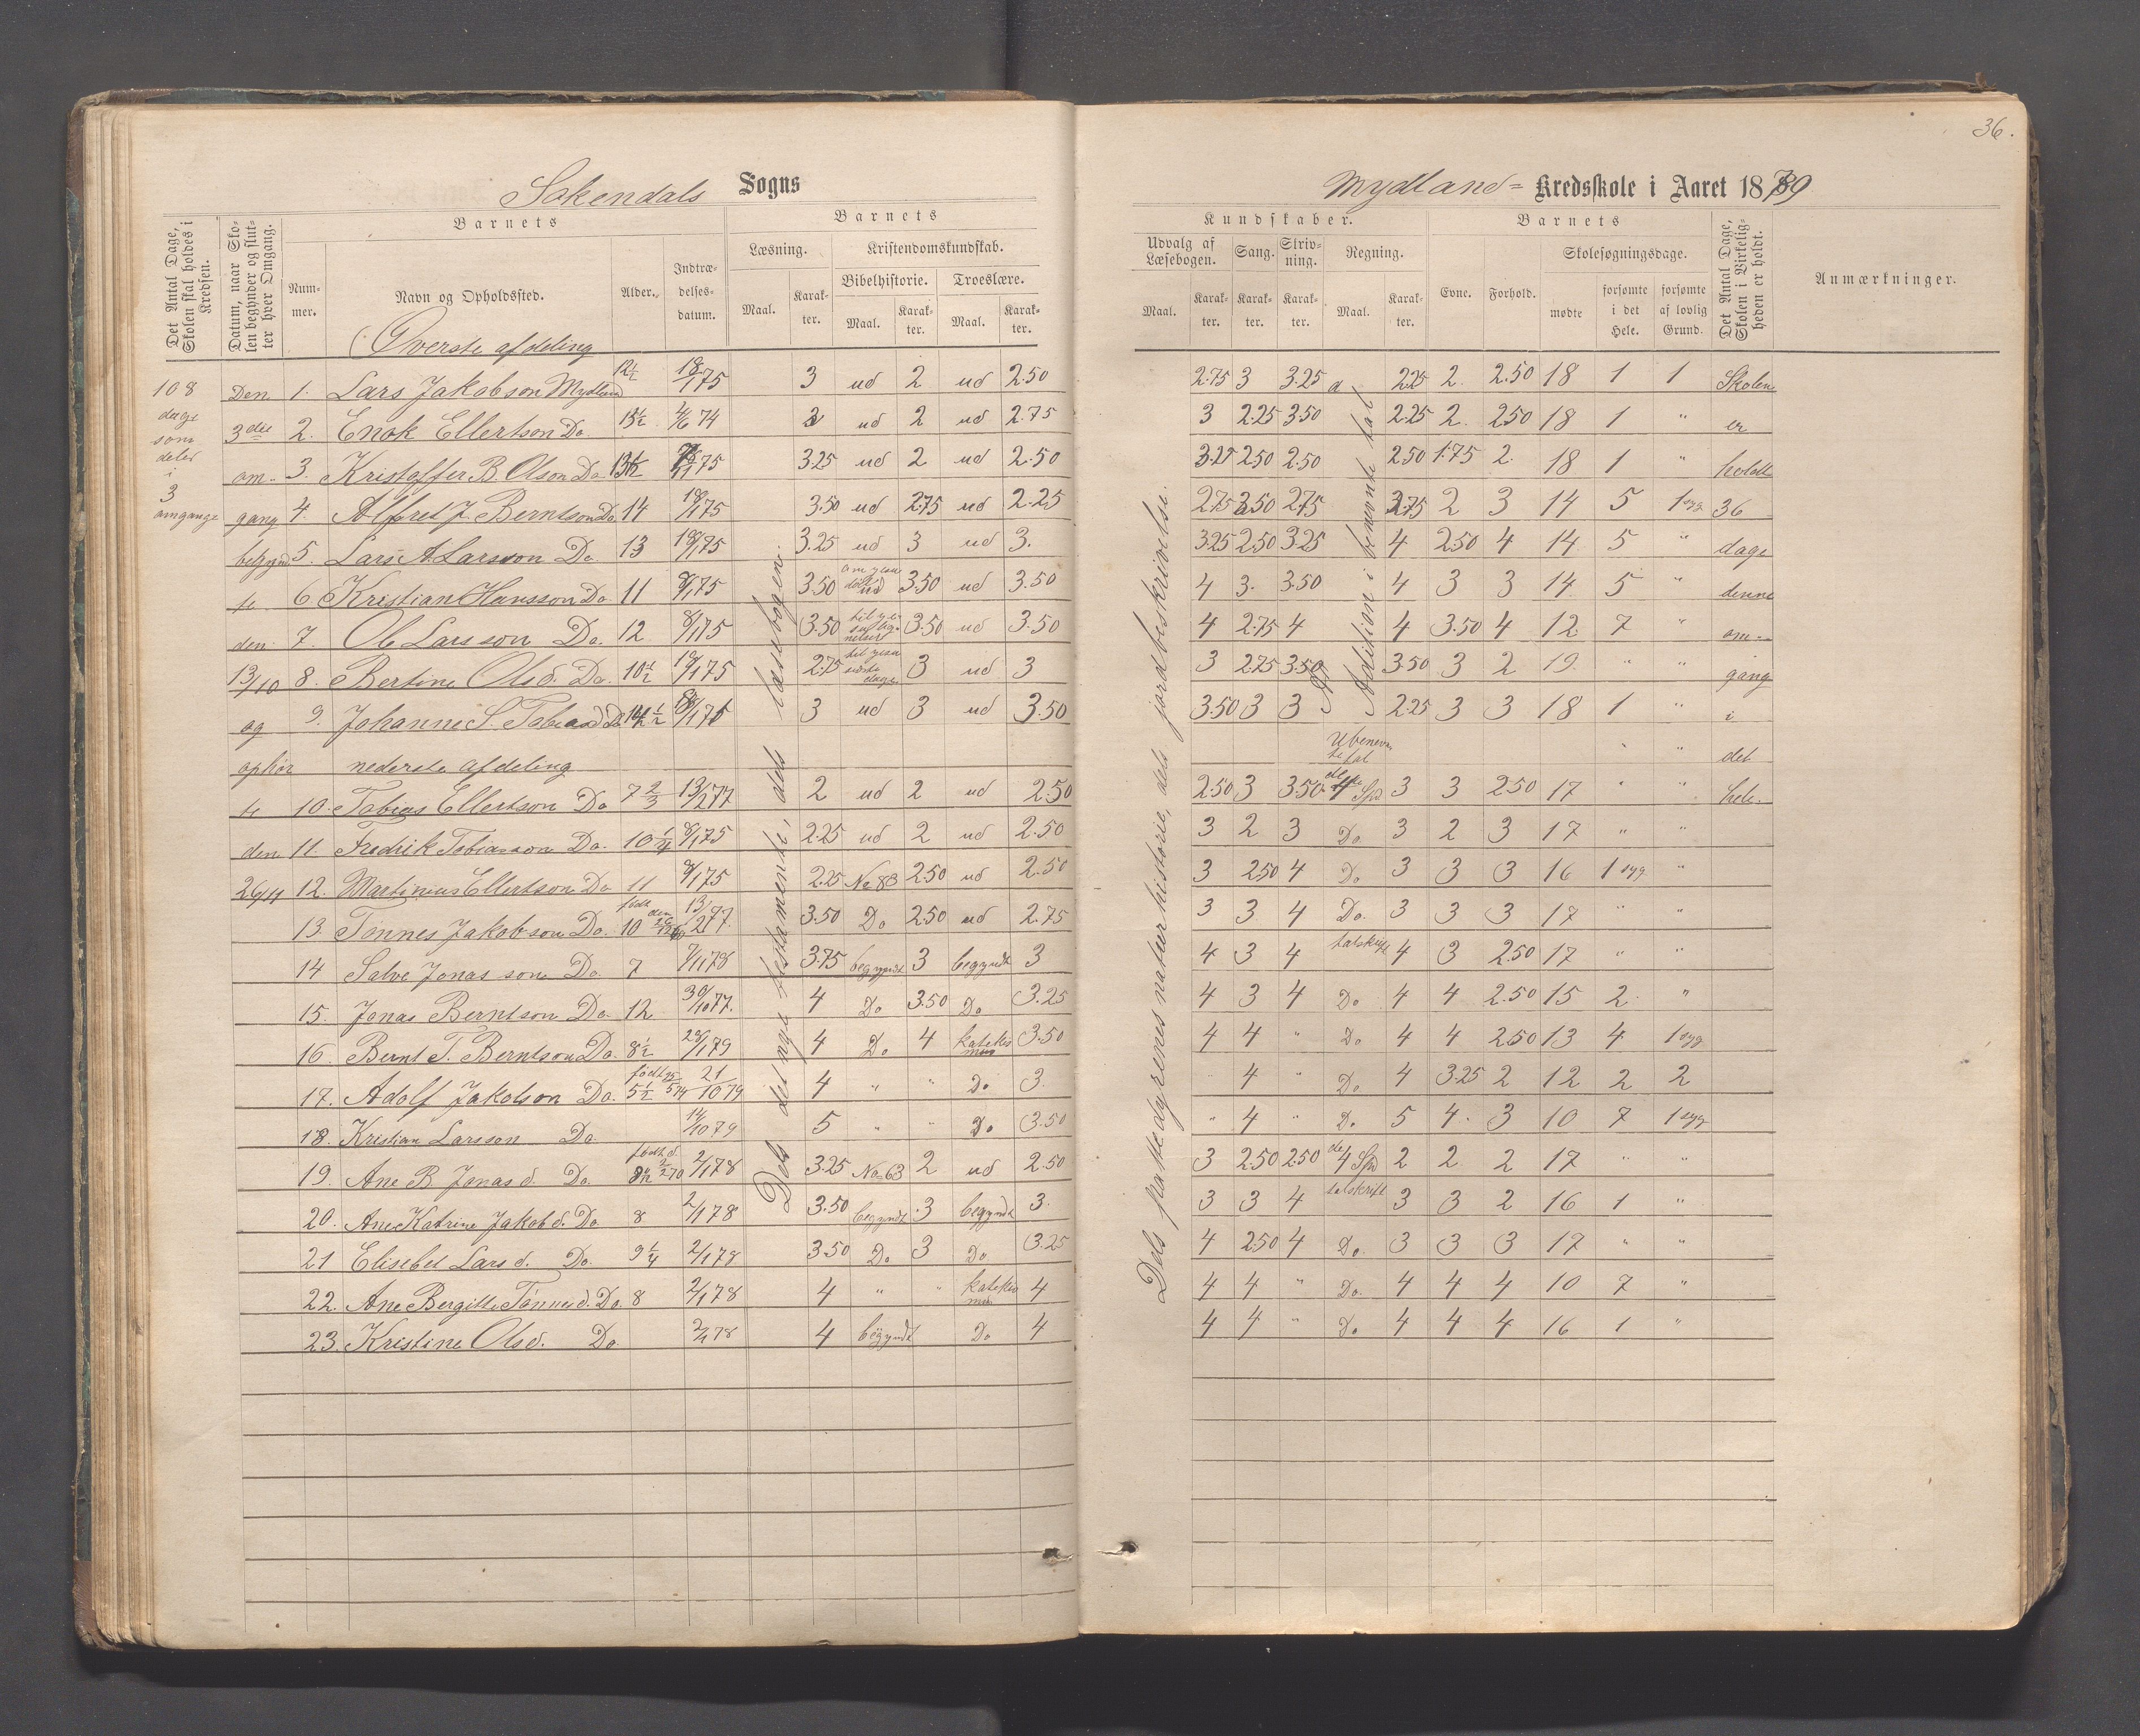 36.
Sokendals Sogns
Mydland = Kredsskole i Aaret 1879
Det Antal Dage, Skolen skal holdes i Kredsen.
Datum, naar Skolen begynder og slutter hver Omgang.
Barnets
Nummer.
Navn og Opholdssted.
Alder.
Indtrædelsesdatum.
Barnets
Læsning.
Maal.
Karakter.
Kristendomskundskab.
Bibelhistorie.
Maal.
Karakter.
Troeslære.
Maal.
Karakter.
Kundskaber.
Udvalg af Læsebogen.
Maal.
Karakter.
Sang.
Karakter.
Skrivning.
Karakter.
Regning.
Maal.
Karakter.
Barnets
Evne.
Forhold.
Skolesøgningsdage.
mødte
forsømte i det Hele.
forsømte af lovlig Grund.
Det Antal Dage, Skolen i Virkeligheden er holdt.
Anmærkninger.
108 dage som deles i 3 omgange
Den 3die omgang begyndte den 13/10 og ophørte den 26/11
Øverste afdeling
1. Lars Jakobson Mydland 12½ 18/1 75 3 ud 2 ud 2.50 2.75 3 3.25 2.25 2. 2.50 18 1 1
2. Enok Ellertson Do 13½ 4/6 74 3 ud 2 ud 2.75 3 2.25 3.50 2.25 2. 2.50 18 1 "
3. Kristoffer B. Olson Do 13½ 75 3.25 ud 2 ud 2.50 3.25 2.50 2.50 2.50 1.75 2. 18 1 "
4. Alfred J. Berntson Do 14 18/1 75 3.50 ud 2.75 ud 2.25 2.75 3.50 2.75 3.75 2 3 14 5 1 syg
5. Lars A. Larsson Do 13 18/1 75 3.25 ud 3 ud 3. 3.25 2.50 3.25 4 2.50 4 14 5 "
6 Kristian Hansson Do 11 8/1 75 3.50 ud 3.50 ud 3.50 4 3. 3.50 4 3 3 14 5 "
7. Ole Larsson Do. 12 8/1 75 3.50 3.50 ud 3.50 4 2.75 4 4 3.50 4 12 7 "
8. Bertine Olsd. Do. 10½ 18/1 75 2.75 3 ud 3 3 2.75 3.50 3.50 3 2 19 " "
9. Johanne S. Tobiasd. Do 14½ 18/1 75 3 ud 3 ud 3.50 3.50 3 3 2.25 3 3 18 1 "
nederste afdeling
Ubenevnte tal
10. Tobias Ellertson Do 7⅔ 13/2 77 2 ud 2 ud 2.50 2.50 3 3.50 de 4 Spd 3 3 2.50 17 " "
11. Fredrik Tobiasson Do. 10¼ 8/1 75 2.25 ud 2 ud 2.50 3 2 3 Do 3 2 3 17 " "
12. Martinius Ellertson Do 11 8/1 75 2.25 No 83 2.50 ud 2.50 3 2.50 4 Do 3 3 3 16 1 syg "
13. Tønnes Jakobson Do. 10 13/2 77. 3.50 Do 2.50 ud 2.75 3 3 4 Do. 3 3 3 17 " "
14 Salve Jonasson Do. 7 7/11 78 3.75 begyndt 3 begyndt 3 4 3 4 talskrift 4 3 2.50 17 "  "
15. Jonas Berntson Do. 12 30/10 77. 4 Do 3.50 Do 3.25 4 3 4 Do 4 4 2.50 15 2 "
16. Bernt T. Berntson Do. 8½ 28/1 79 4 Do 4 katekismus 3.50 4 4 " Do 4 4 2.50 13 4 1 syg
17. Adolf Jakobson Do. 5½ 21/10 79 4 " " Do 3. " 4 " Do 4 3.25 2 12 2 2
18. Kristian Larsson Do. 14/10 79 5 " " Do 3.50 " 4 " Do 5 4. 3 10 7 1 syg
19. Ane B. Jonasd. Do. 2/1 78 3.25 No 63 2 ud 2.50 3 2.50 2.50 de 4 Spd 2 2 2 17 " "
20. Ane Katrine Jakobd. Do 8 2/1 78 3.50 begyndt 3 begyndt 3. 3 3 4 talskrift 3 3 2 16 1 "
21 Elisebet Larsd. Do. 9¼ 2/1 78 3.50 Do 3 Do 3.25 4 2.50 4 Do. 3 3 3 17 " "
22. Ane Bergitte Tønnesd. Do. 8 2/1 78 4 " " katekismus 4 4 4 " Do. 4 4 4 10 7 "
23. Kristine Olsd. Do. 2/1 78 4 begyndt Do 4 4 4 " Do 4 4 4 16 1 "
Dels det nye testamente, dels læsebogen.
Dels pattedyrenes naturhistorie, dels jordbeskrivelse.
Adition i benevnte tal
Skolen er holdt 36 dage denne omgang i det hele.